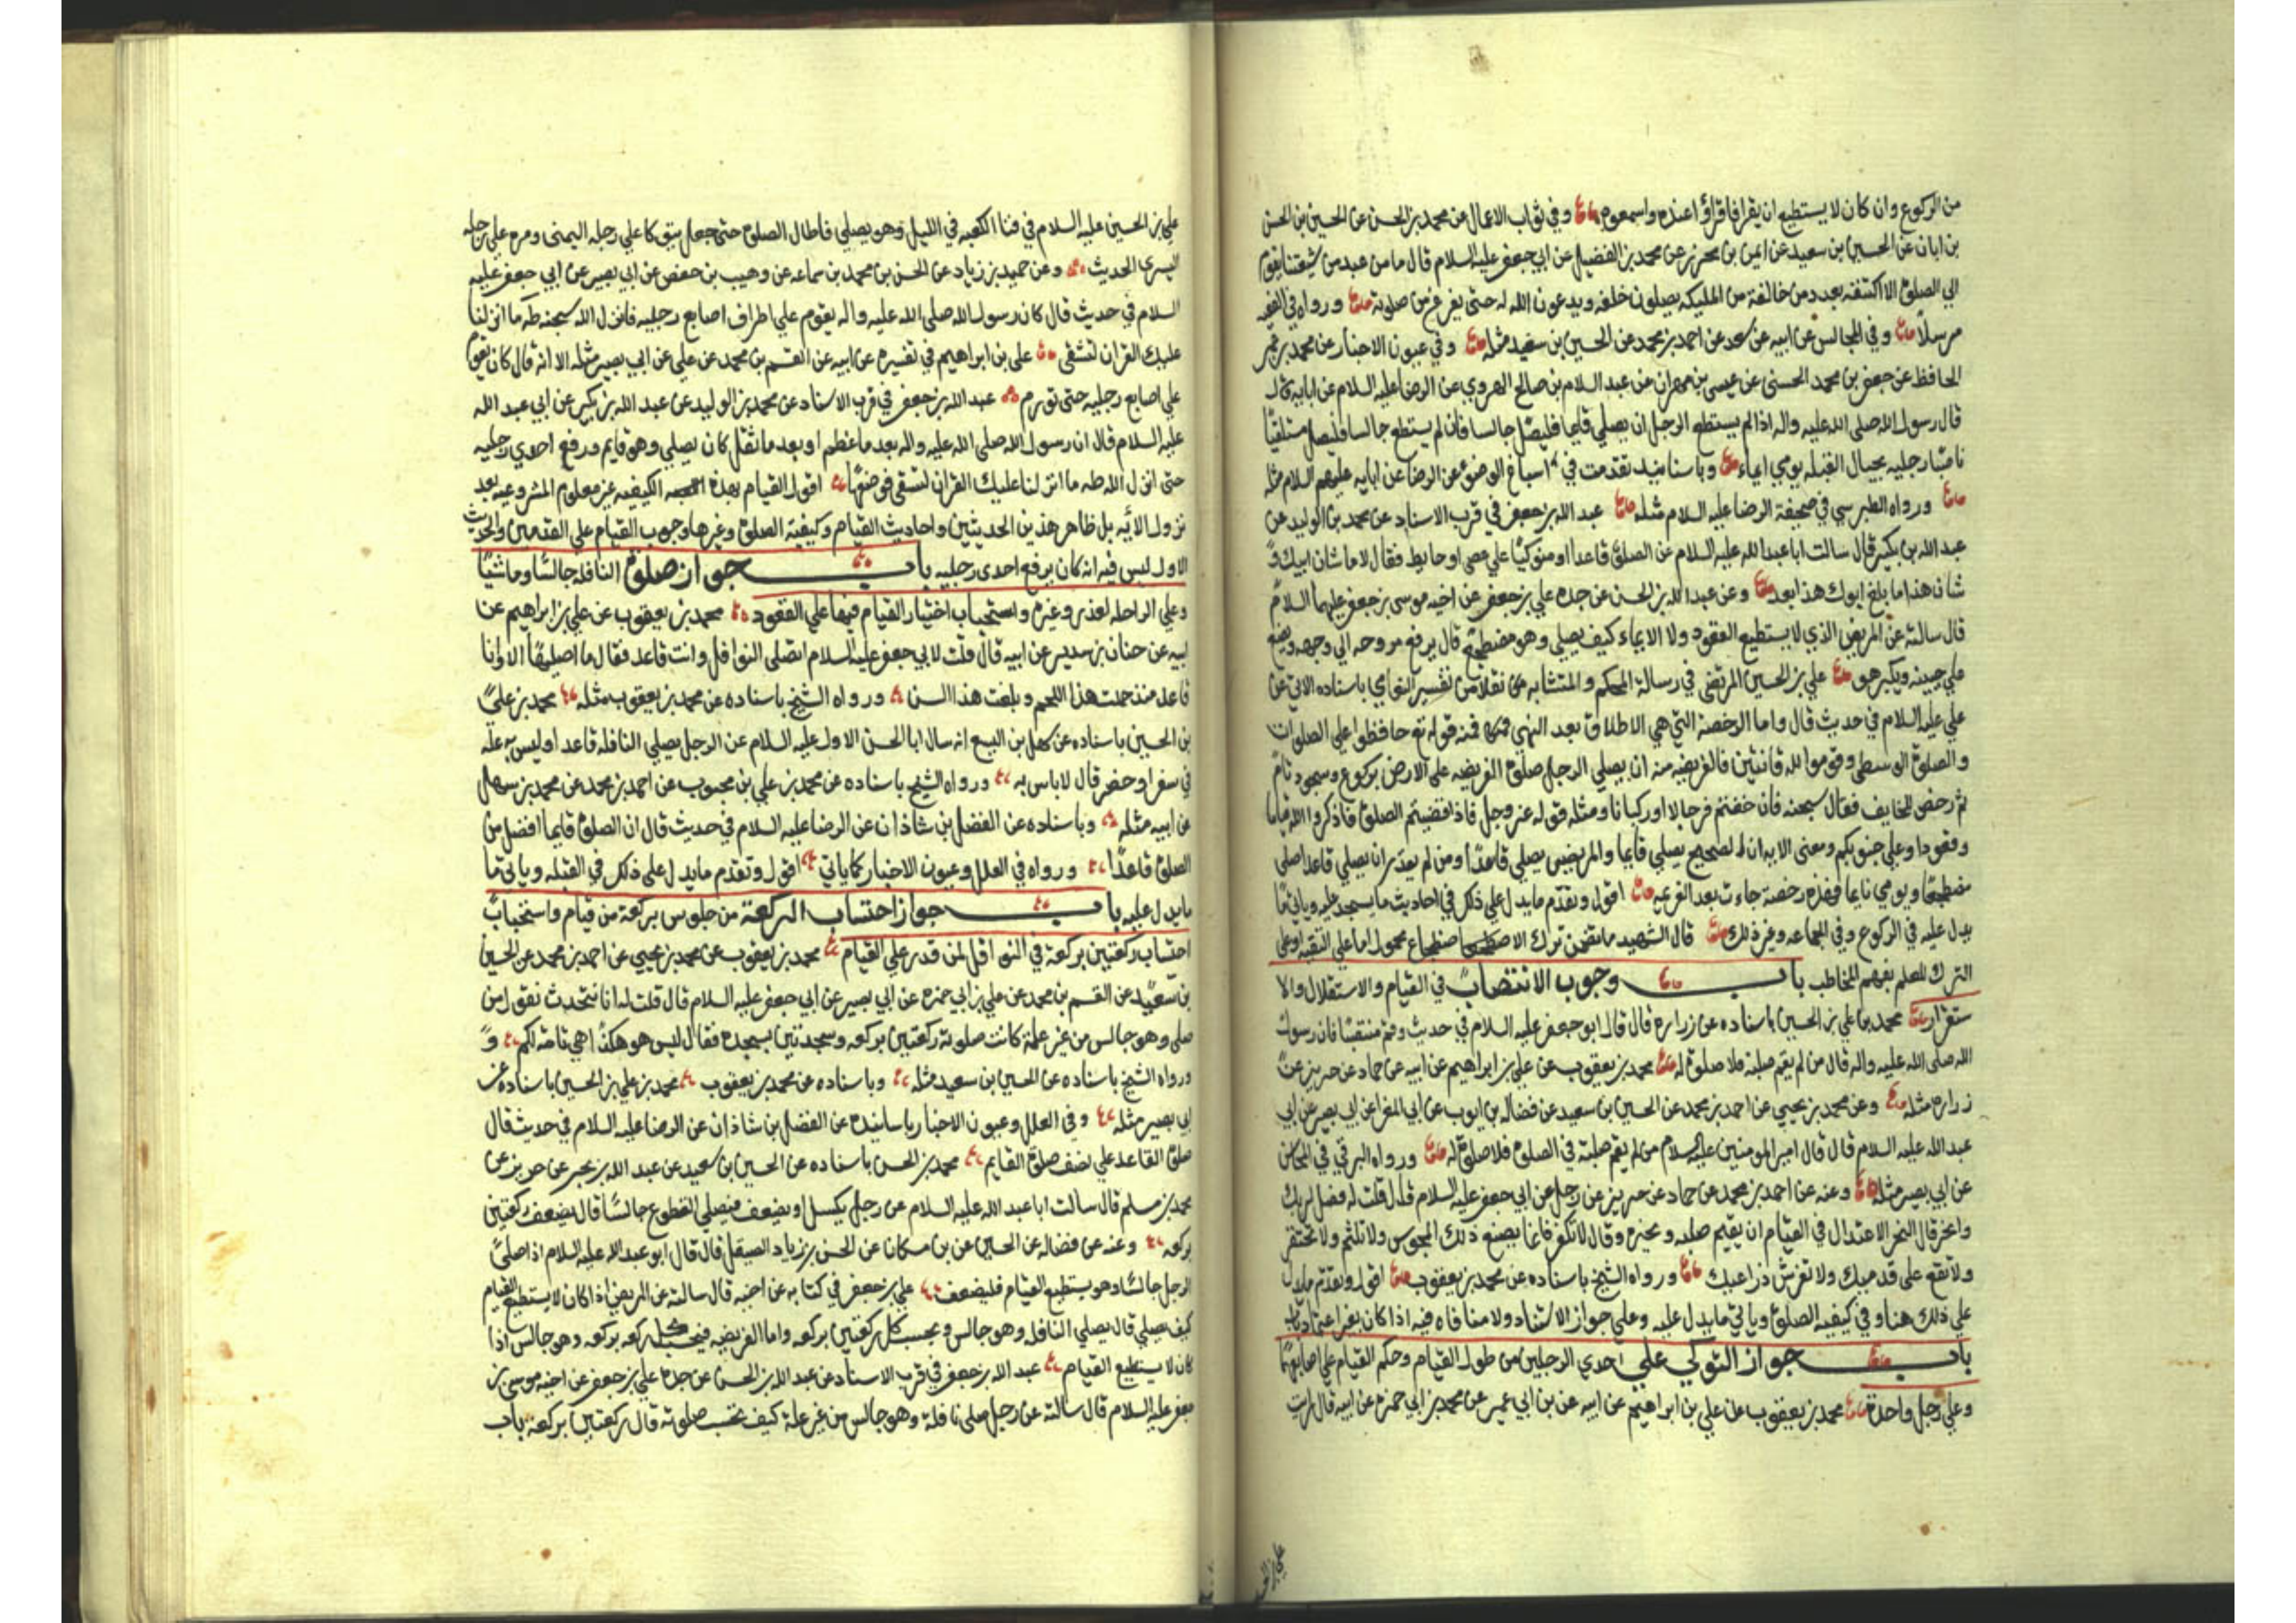 من الركوع وان كان لا يستطيع ان يقرا فاقراؤا عنده واسمعوه وفي ثواب الاعمال عن محمد بن الحسن عن الحسين بن الحسن
بن ابان عن الحسين بن سعيد عن ايمن بن محرز عن محمد بن الفضيل عن ابي جعفر عليه السلام قال ما من عبد من شيعتنا يقوم
الي الصلوة الا اكتنفه بعدد من خالفه من المليكه يصلون خلفه ويدعون الله له حتى يفرغ من صلوته ورواه في الفقيه
مرسلاً وفي المجالس عن ابيه عن سعد عن احمد بن محمد عن الحسين بن سعيد مثله وفي عيون الاخبار عن محمد بن عمر
الحافظ عن جعفر بن محمد الحسني عن عيسى بن مهران عن عبد السلام بن صالح الهروي عن الرضا عليه السلام عن ابايه قال
قال رسول الله صلى الله عليه واله اذا لم يستطع الرجل ان يصلي قايما فليصل جالسا فان لم يستطع جالسا فليصل مستلقيا
ناصبا رجليه بحيال القبله يومي ايماء وباسانيد تقدمت في اسباغ الوضوء عن الرضا عن ابايه عليهم السلام مثله
ورواه الطبرسي في صحيفة الرضا عليه السلام مثله عبد الله بن جعفر في قرب الاسناد عن محمد بن الوليد عن
عبد الله بن بكير قال سالت ابا عبد الله عليه السلام عن الصلوة قاعدا او متوكيًا علي عصى او حايط فقال لا ما شان ابيك و
شان هذا ما بلغ ابوك هذا بعد وعن عبد الله بن الحسن عن جده علي بن جعفر عن اخيه موسى بن جعفر عليهما السلام
قال سالته عن المريض الذي لا يستطيع القعود ولا الايماء كيف يصلي وهو مضطجع قال يرفع مروحه الي وجهه ويضع
علي جبينه ويكبر هو علي بن الحسين المرتضى في رسالة المحكم والمتشابه نقلا من تفسير النعماني باسناده الاتي عن
علي عليه السلام في حديث قال واما الرخصة التي هي الاطلاق بعد النهي فمنه قوله تع حافظوا علي الصلوات
والصلوة الوسطى وقوموا لله قانتين فالفريضه منه ان يصلي الرجل صلوة الفريضه على الارض بركوع وسجود تام
ثم رخص للخايف فقال سبحنه فان خفتم فرجالا او ركبانا ومثله قوله عز وجل فاذا قضيتم الصلوة فاذكروا الله قياما
وقعودا وعلي جنوبكم ومعنى الايه ان الصحيح يصلي قايما والمريض يصلي قاعدًا ومن لم يقدر ان يصلي قاعدا صلى
مضطجعًا ويومي نايما فهذه رخصة جاءت بعد العزيمه اقول وتقدم ما يدل علي ذلك في احاديث ما يسجد عليه وياتي ما
يدل عليه في الركوع وفي الجماعه وغير ذلك قال الشهيد ما تضمن ترك الاضطجاع محمول اما على التقيه او على
الترك للعلم بفهم المخاطب باب وجوب الانتصاب في القيام والاستقلال والا
ستقرار محمد بن علي بن الحسين باسناده عن زراره قال قال ابو جعفر عليه السلام في حديث وقم منتصبًا فان رسول
الله صلى الله عليه واله قال من لم يقم صلبه فلا صلوة له محمد بن يعقوب عن علي بن ابراهيم عن ابيه عن حماد عن حريز عن
زراره مثله وعن محمد بن يحيي عن احمد بن محمد عن الحسين بن سعيد عن فضاله بن ايوب عن ابي المغرا عن ابي بصير عن ابي
عبد الله عليه السلام قال قال امير المومنين عليه السلام من لم يقم صلبه في الصلوة فلا صلوة له ورواه البرقي في المحاسن
عن ابي بصير مثله وعنه عن احمد بن محمد عن حماد عن حريز عن رجل عن ابي جعفر عليه السلام قال قلت له فصل لربك
وانحر قال النحر الاعتدال في القيام ان يقيم صلبه ونحره وقال لا تكفر فانما يصنع ذلك المجوس ولا تلثم ولا تحتفز
ولا تقع على قدميك ولا تفترش ذراعيك ورواه الشيخ باسناده عن محمد بن يعقوب اقول وتقدم ما يدل
علي ذلك هنا وفي كيفيه الصلوة وياتي ما يدل عليه وعلي جواز الاستناد ولا منافاه فيه اذا كان بغير اعتماد
باب جواز التوكي علي احدي الرجلين من طول القيام وحكم القيام علي اصابعهما
وعلي رجل واحدة محمد بن يعقوب عن علي بن ابراهيم عن ابيه عن بن ابي عمير عن محمد بن ابي حمزه عن ابيه قال رايت
علي بن الح
علي بن الحسين عليه السلام في فنا الكعبه في الليل وهو يصلي فاطال الصلوة حتى جعل يتوكا علي رجله اليمنى ومره علي رجله
اليسرى الحديث وعن حميد بن زياد عن الحسن بن محمد بن سماعه عن وهيب بن حفص عن ابي بصير عن ابي جعفر عليه
السلام في حديث قال كان رسول الله صلى الله عليه واله يقوم علي اطراف اصابع رجليه فانزل الله سبحنه طه ما انزلنا
عليك القران لتشقى على بن ابراهيم في تفسيره عن ابيه عن القسم بن محمد عن علي عن ابي بصير مثله الا انه قال كان يقوم
علي اصابع رجليه حتى تورم عبد الله بن جعفر في قرب الاسناد عن محمد بن الوليد عن عبد الله بن بكير عن ابي عبد الله
عليه السلام قال ان رسول الله صلى الله عليه واله بعد ما عظم او بعد ما ثقل كان يصلي وهو قايم ورفع احدي رجليه
حتى انزل الله طه ما انزلنا عليك القران لتشقى فوضعها اقول القيام بهذه الكيفيه غير معلوم المشروعيه بعد
نزول الايه بل ظاهر هذين الحديثين واحاديث القيام وكيفية الصلوة وغيرها وجوب القيام علي القدمين والحديث
الاول ليس فيه انه كان يرفع احدى رجليه باب جواز صلوة النافله جالسًا وماشيًا
وعلي الراحله لعذر وغيره واستحباب اختيار القيام فيها علي القعود محمد بن يعقوب عن علي بن ابراهيم عن
ابيه عن حنان بن سدير عن ابيه قال قلت لابي جعفر عليه السلام اتصلى النوافل وانت قاعد فقال ما اصليها الا وانا
قاعد منذ حملت هذا اللحم وبلغت هذا السن ورواه الشيخ باسناده عن محمد بن يعقوب مثله محمد بن علي
بن الحسين باسناده عن سهل بن اليسع انه سال ابا الحسن الاول عليه السلام عن الرجل يصلي النافله قاعدا وليس به عله
في سفر او حضر قال لا باس به ورواه الشيخ باسناده عن محمد بن علي بن محبوب عن احمد بن محمد عن محمد بن سهل
عن ابيه مثله وباسناده عن الفضل بن شاذان عن الرضا عليه السلام في حديث قال ان الصلوة قايما افضل من
الصلوة قاعدًا ورواه في العلل وعيون الاخبار كما ياتي اقول وتقدم ما يدل على ذلك في القبله وياتي ما
ما يدل عليه باب جواز احتساب الركعة من جلوس بركعة من قيام واستحباب
احتساب ركعتين بركعة في النوافل لمن قدر علي القيام محمد بن يعقوب عن محمد بن يحيي عن احمد بن محمد عن الحسين
بن سعيد عن القسم بن محمد عن علي بن ابي حمزه عن ابي بصير عن ابي جعفر عليه السلام قال قلت له انا نتحدث نقول من
صلى وهو جالس من غير علة كانت صلوته ركعتين بركعه وسجدتين بسجده فقال ليس هو هكذا هي تامه لكم و
ورواه الشيخ باسناده عن الحسين بن سعيد مثله وباسناده عن محمد بن يعقوب محمد بن علي بن الحسين باسناده عن
ابي بصير مثله وفي العلل وعيون الاخبار باسانيده عن الفضل بن شاذان عن الرضا عليه السلام في حديث قال
صلوة القاعد علي نصف صلوة القايم محمد بن الحسن باسناده عن الحسين بن سعيد عن عبد الله بن بحر عن حريز عن
محمد بن مسلم قال سالت ابا عبد الله عليه السلام عن رجل يكسل او يضعف فيصلي التطوع جالسًا قال يضعف ركعتين
بركعه وعنه عن فضاله عن الحسين عن بن مسكان عن الحسن بن زياد الصيقل قال قال ابو عبد الله عليه السلام اذا صلى
الرجل جالسًا وهو يستطيع القيام فليضعف علي بن جعفر في كتابه عن اخيه قال سالته عن المريض اذا كان لا يستطيع القيام
كيف يصلي قال يصلي النافله وهو جالس ويحسب كل ركعتين بركعه واما الفريضه فيحتسب كل ركعه بركعه وهو جالس اذا
كان لا يستطيع القيام عبد الله بن جعفر في قرب الاسناد عن عبد الله بن الحسن عن جده علي بن جعفر عن اخيه موسى بن
جعفر عليه السلام قال سالته عن رجل صلى نافلة وهو جالس من غير علة كيف تحسب صلوته قال ركعتين بركعة باب